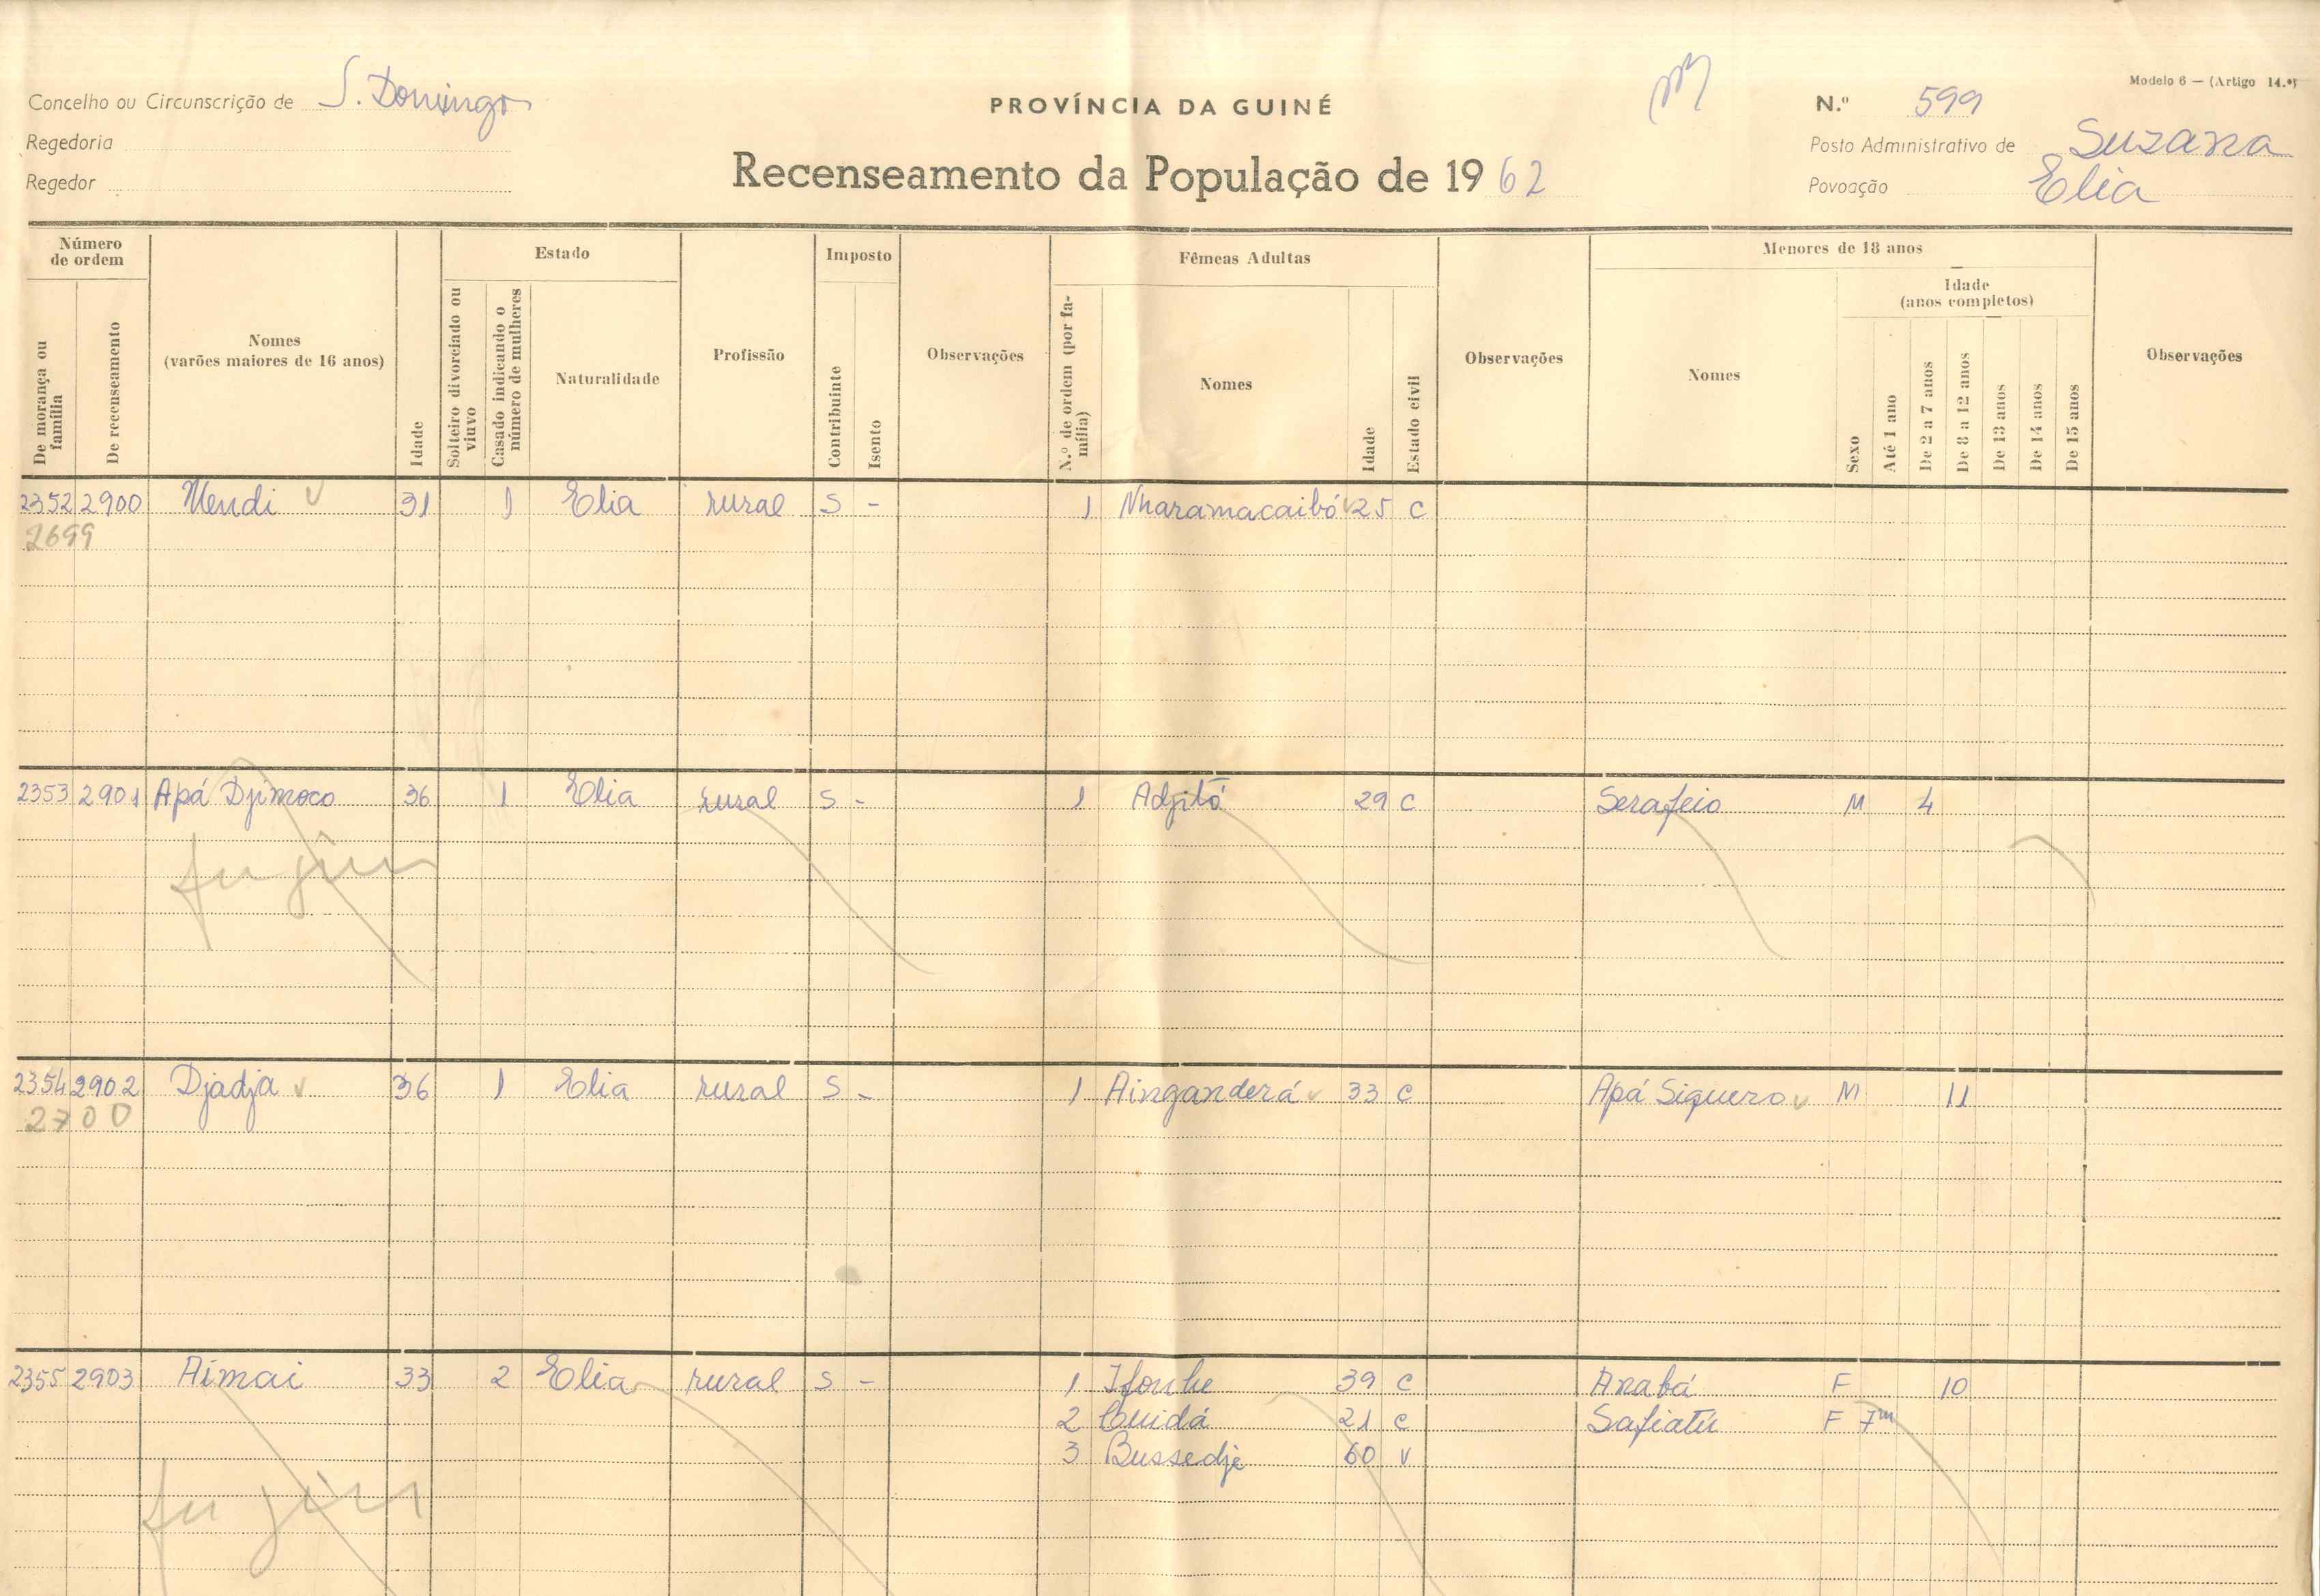 Modelo 6 — (Artigo 14.º)
Concelho ou Circunscrição de S. Domingos
PROVÍNCIA DA GUINÉ
N.º 599
Regedoria
Posto Administrativo de Suzana
Regedor
Recenseamento da População de 1962
Povoação Elia
Número de ordem
Estado
Imposto
Fêmeas Adultas
Menores de 18 anos
Idade (anos completos)
De morança ou família
De recenseamento
Nomes (varões maiores de 16 anos)
Idade
Solteiro divorciado ou viuvo
Casado indicando o número de mulheres
Naturalidade
Profissão
Contribuinte
Isento
Observações
N.º de ordem (por família)
Nomes
Idade
Estado civil
Observações
Nomes
Sexo
Até 1 ano
De 2 a 7 anos
De 8 a 12 anos
De 13 anos
De 14 anos
De 15 anos
Observações
2352 2900 Mendi 31 1 Elia rural S - 1 Nharamacaibó 25 C
2699
2353 2901 Apá Djimoco 36 1 Elia rural S - 1 Adjitó 29 C Serafeio M 4
fugiu
2354 2902 Djadja 36 1 Elia rural S - 1 Ainganderá 33 C Apá Siquero M 11
2700
2355 2903 Aimai 33 2 Elia rural S - 1 39 C Anabá F 10
2 21 C Safiatu F 7m
3 Bussedje 60 V
fugiu